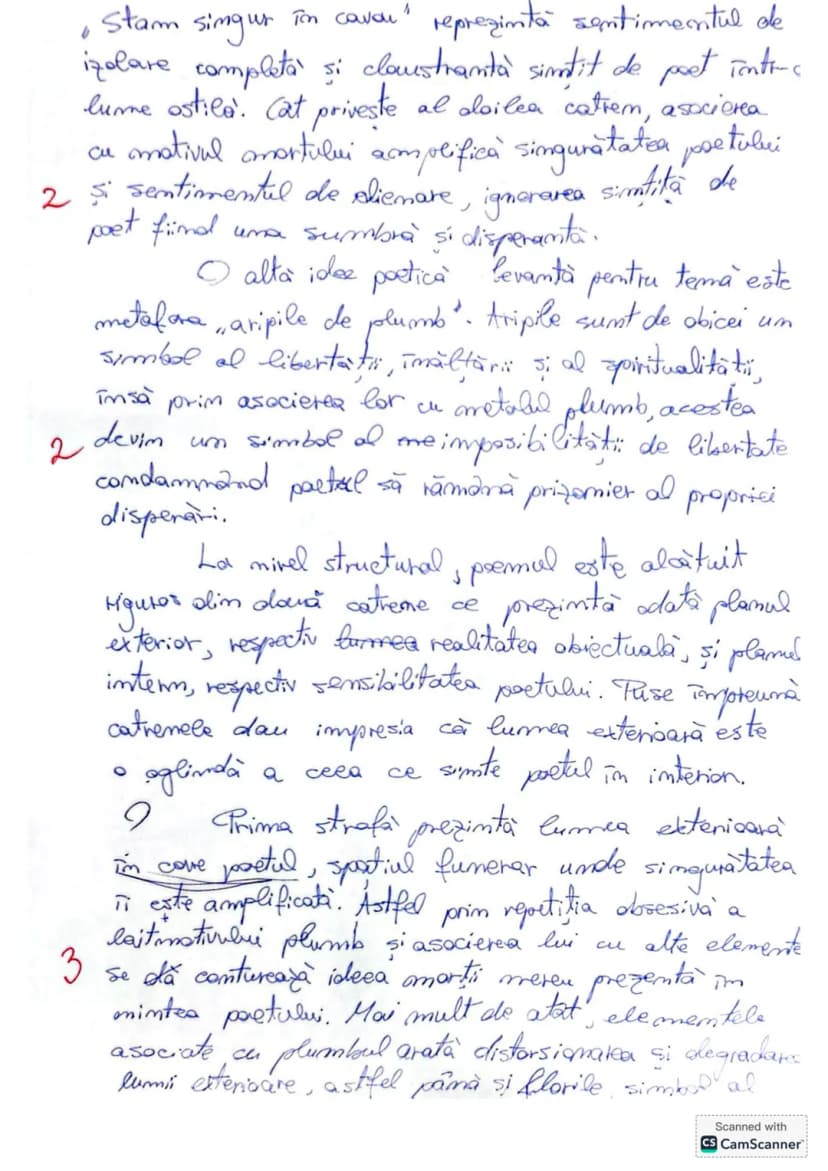 „Stam singur în cavou" reprezintă sentimentul de
izolare completă și claustrantă simțit de poet într-o
lume ostilă. Cât privește al doilea catren, asocierea
cu motivul mortului amplifică singurătatea poetului
2 și sentimentul de alienare, ignorarea simțită de
poet fiind una sumbră și disperantă.
O altă idee poetică levantă pentru temă este
metafora „aripile de plumb". Aripile sunt de obicei un
simbol al libertății, înălțării și al spiritualității,
însă prin asocierea lor cu metalul plumb, acestea
2 devin un simbol al neimposibilității de libertate
condamnând poetul să rămână prizonier al propriei
disperări.
La nivel structural, poemul este alcătuit
riguros din două catrene ce prezintă odată planul
exterior, respectiv lumea realitatea obiectuală, și planul
intern, respectiv sensibilitatea poetului. Puse împreună
catrenele dau impresia că lumea exterioară este
o oglindă a ceea ce simte poetul în interior.
Prima strofă prezintă lumea exterioară
în care poetul, spațiul funerar unde singurătatea
îi este amplificată. Astfel prin repetiția obsesivă a
laitmotivului plumb și asocierea lui cu alte elemente
3 se dă conturează ideea morții mereu prezentă în
mintea poetului. Mai mult de atât, elementele
asociate cu plumbul arată distorsionalea și degradare
lumii exterioare, astfel până și florile, simbol al
Scanned with
CS CamScanner